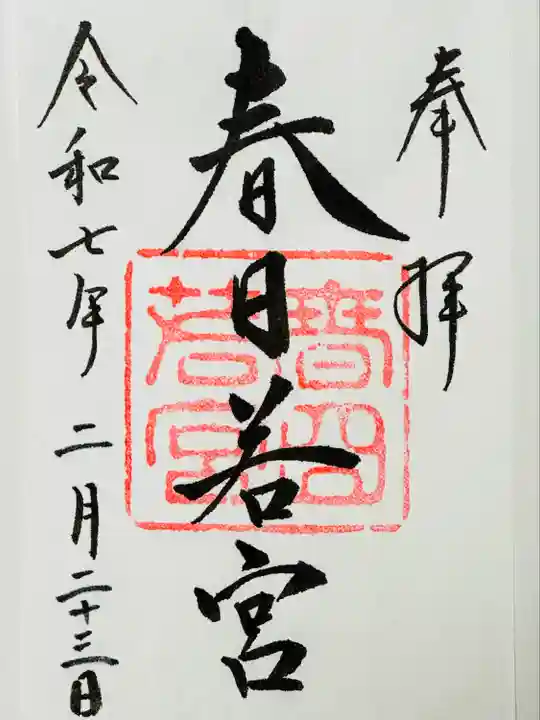 奉拝
春日若宮
令和七年 二月二十三日
春日
若宮